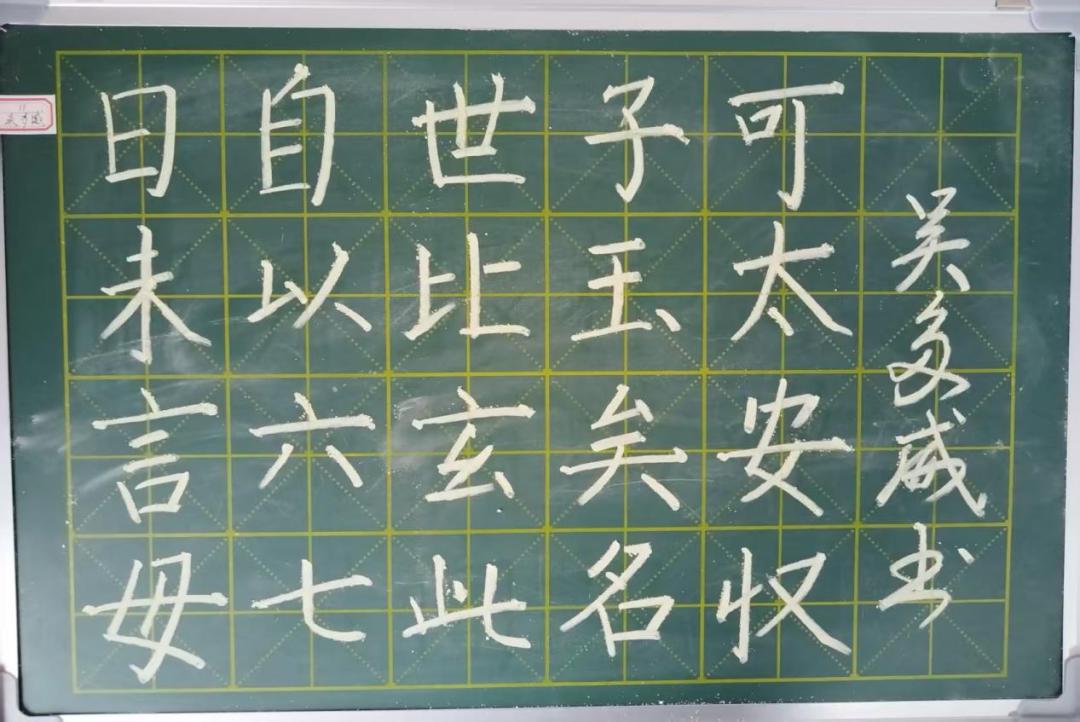 日自世子可
未以比玉太
言六玄矣安
毋七此名收
吴多威书